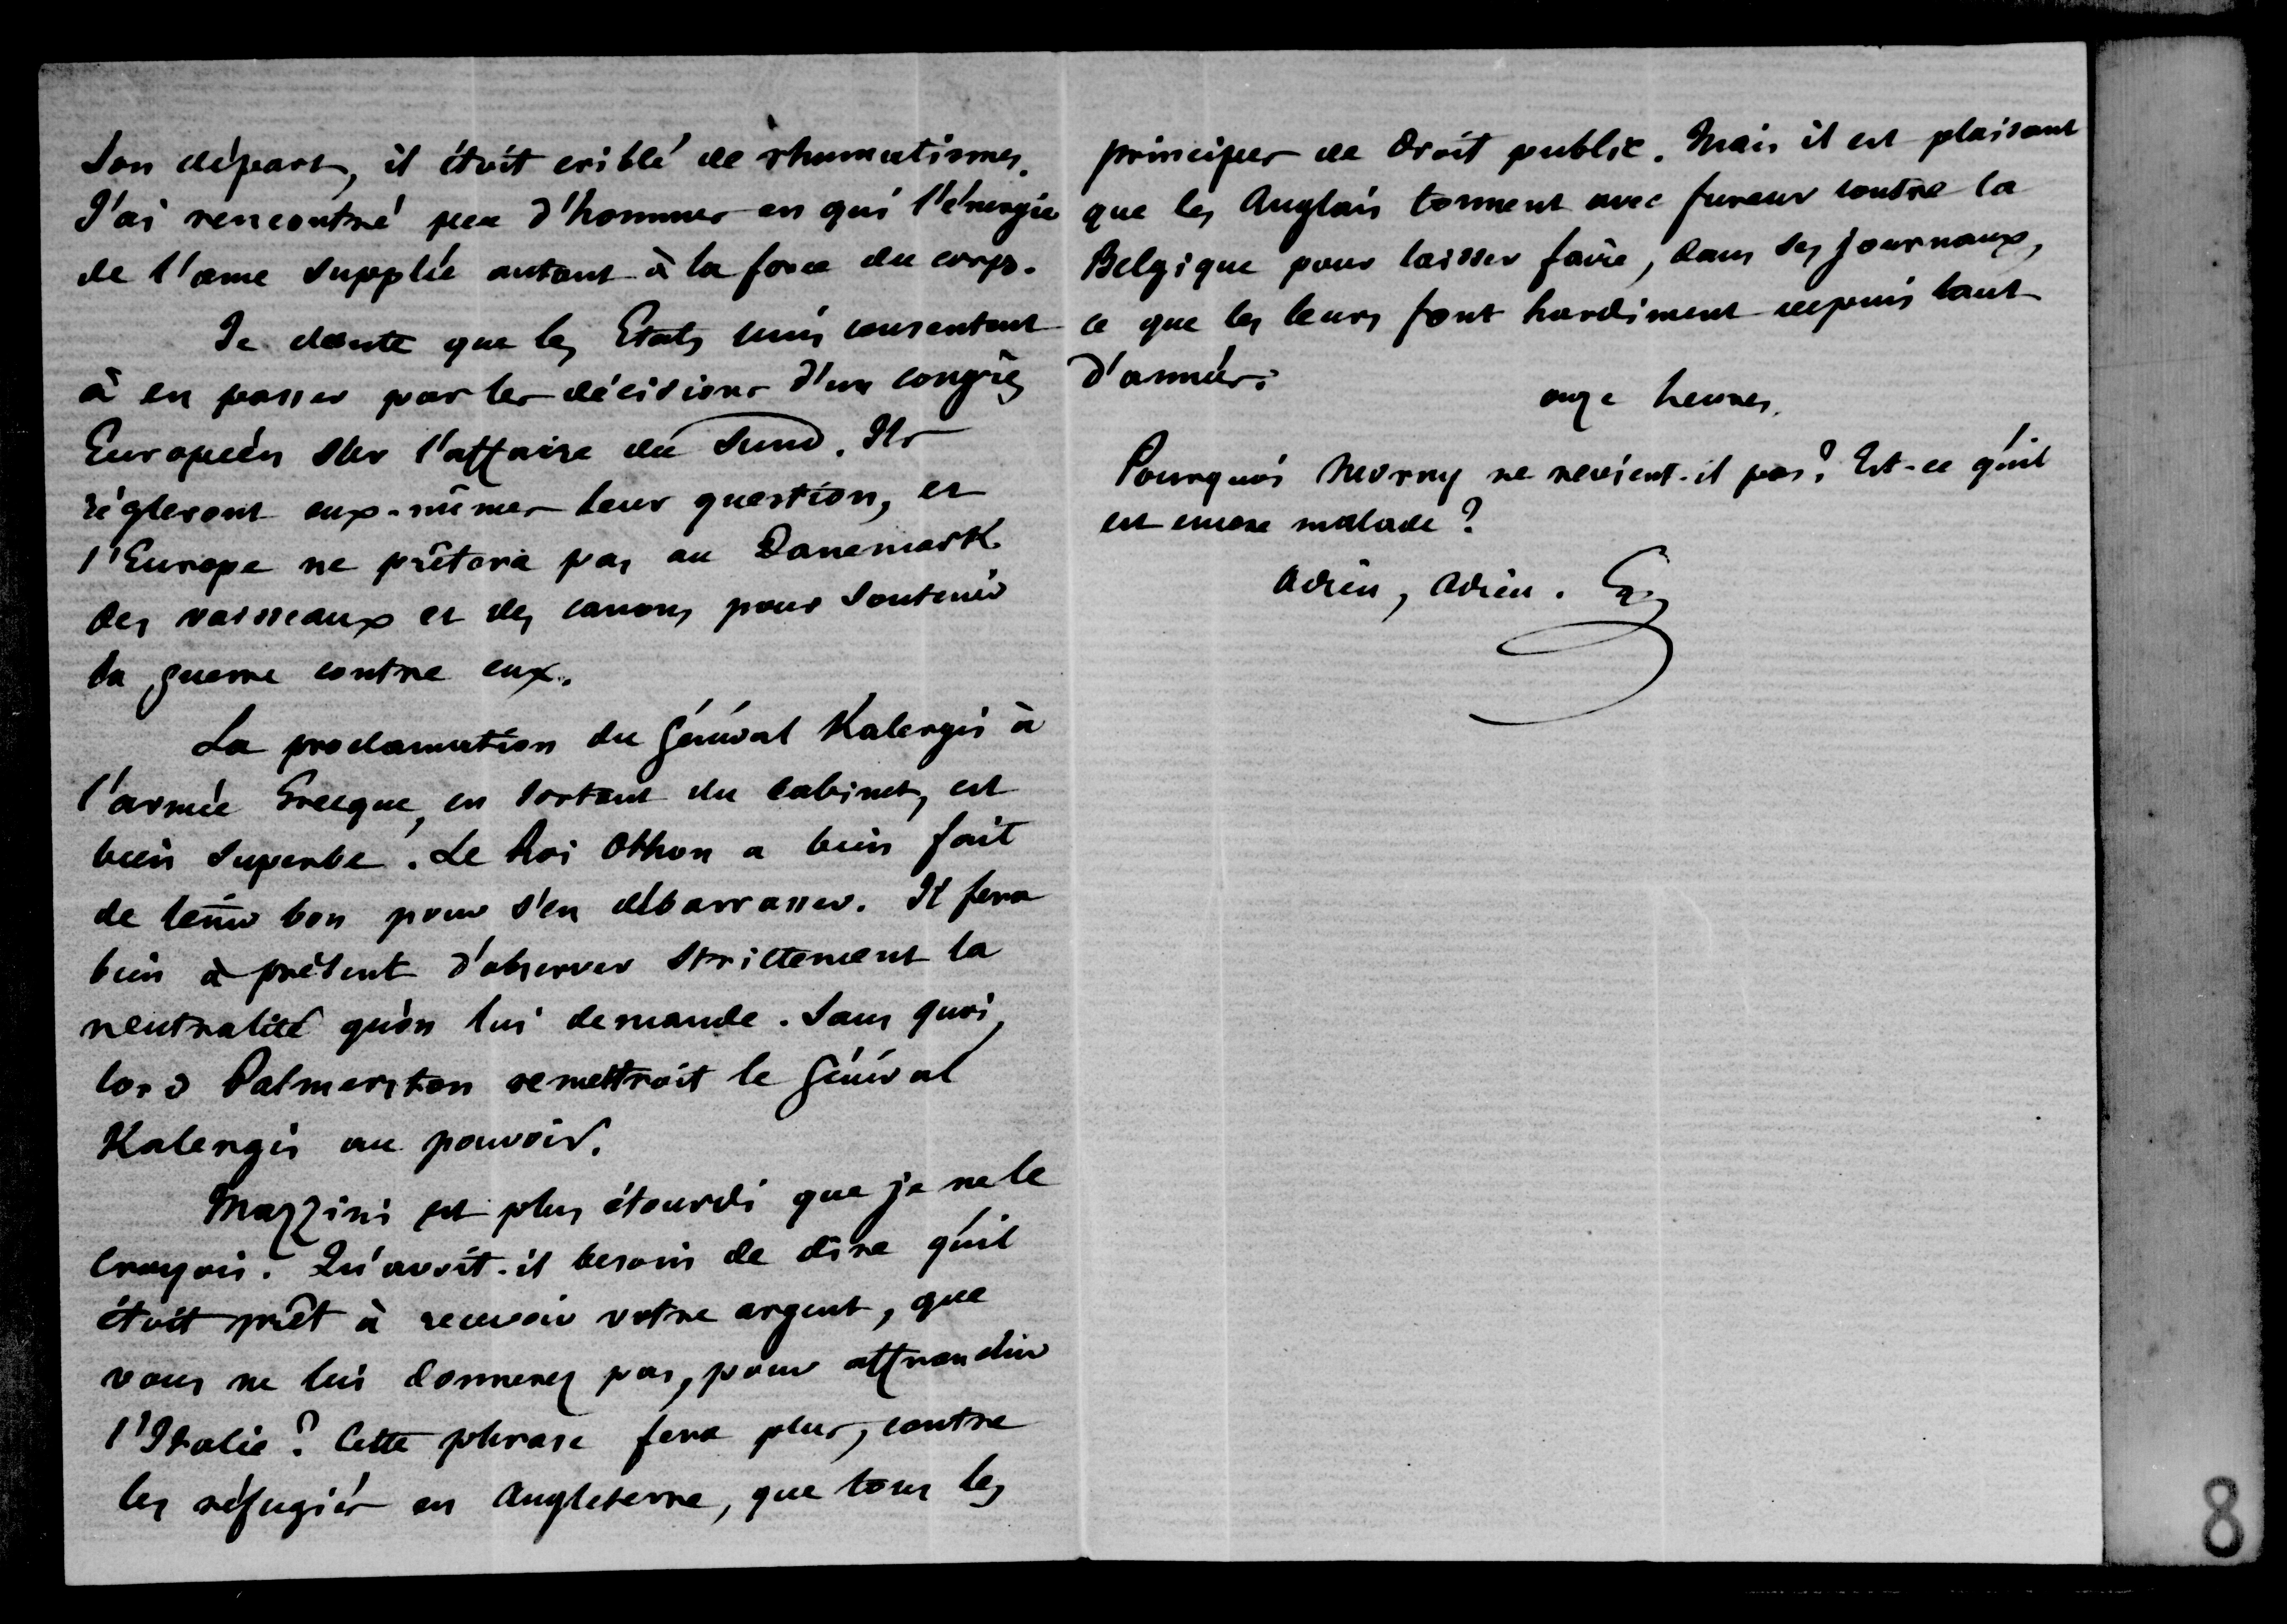 son départ, il étoit criblé de rhumatismes.
J'ai rencontré peu d'hommes en qui l'énergie
de l'ame supplée autant à la force du corps.
Je doute que les Etats unis consentent
à en passer par les décisions d'un congrès
Européen sur l'affaire du Sund. Ils
règleront eux-mêmes leur question, et
l'Europe ne prêtera pas au Danemark
des vaisseaux et des canons pour soutenir
la guerre contre eux.
La proclamation du Général Kalergis à
l'armée Grecque, en sortant du cabinet, est
bien superbe. Le Roi Othon a bien fait
de tenir bon pour s'en débarrasser. Il fera
bien à présent d'observer strictement la
neutralité qu'on lui demande. Sans quoi,
lord Palmerston remettroit le Général
Kalergis au pouvoir.
Mazzini est plus étourdi que je ne le
croyois. Qu'avoit-il besoin de dire qu'il
étoit prêt à recevoir votre argent, que
vous ne lui donnerez pas, pour affranchir
l'Italie? Cette phrase fera plus, contre
les réfugiés en Angleterre, que tous les
principes de droit public. Mais il est plaisant
que les Anglais tonnent avec fureur contre la
Belgique pour laisser faire, dans ses journaux,
ce que les leurs font hardiment depuis tant
d'années.
onze heures.
Pourquoi Morny ne revient-il pas? Est-ce qu'il
est encore malade?
Adieu, Adieu. G
8